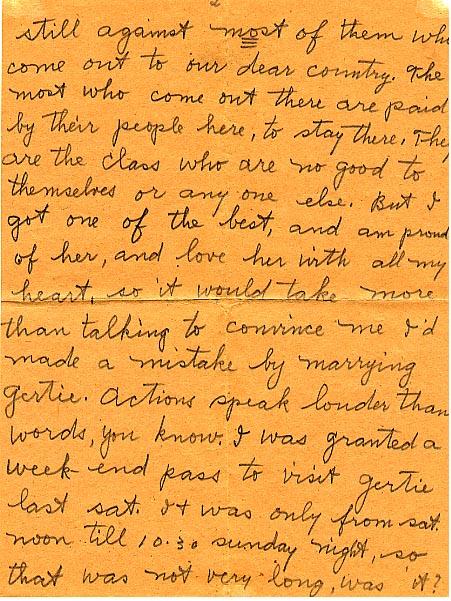 2
still against most of them who
come out to our dear country. The
most who come out there are paid
by their people here, to stay there. They
are the class who are no good to
themselves or any one else. But I
got one of the best, and am proud
of her, and love her with all my
heart, so it would take more
than talking to convince me I'd
made a mistake by marrying
Gertie. Actions speak louder than
words, you know. I was granted a
week-end pass to visit Gertie
last sat. It was only from sat.
noon till 10:30 sunday night, so
that was not very long, was it?